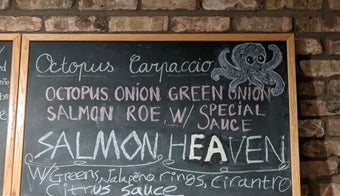 Octopus Carpaccio
OCTOPUS ONION GREEN ONION
SALMON ROE W/ SPECIAL
SAUCE
SALMON HEAVEN
W/Greens, Jalapeño rings, cirantro
Citrus sauce